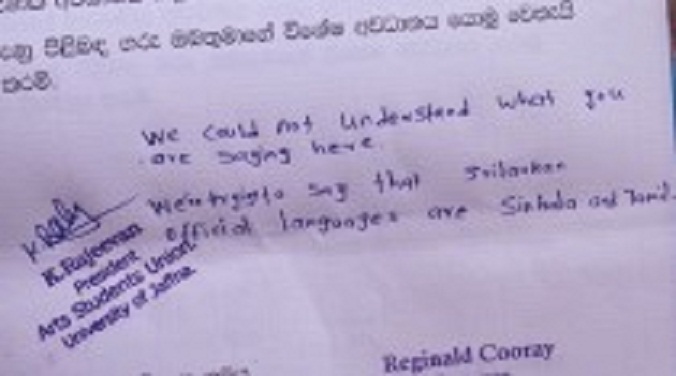 පිළිබඳ ගරු ඔබතුමාගේ විශේෂ අවධානය යොමු
කරමි.
We could not understand what you
are saying here.
to say that Srilankan
official languages are Sinhala and Tamil.
K.Rajeevan
President
Arts Students Union
University of Jaffna.
Reginald Cooray